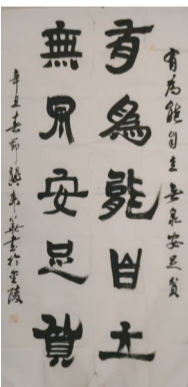 有為能自主安足
有為能自主
無安足
辛丑春節書於金陵